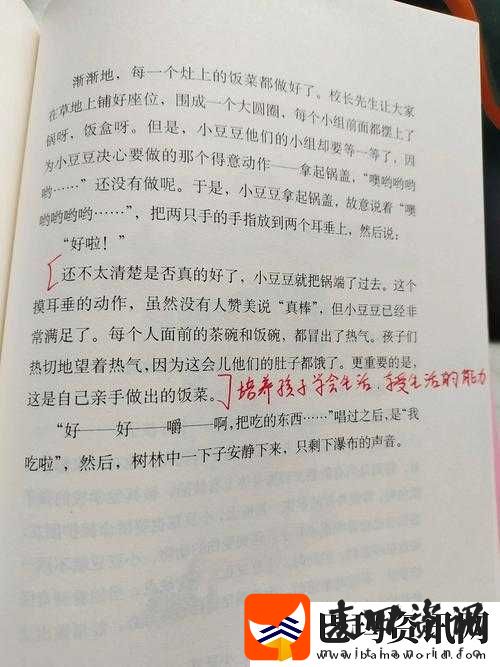 渐渐地，每一个灶上的饭菜都做好了。校长先生让大家
在草地上铺好座位，围成一个大圆圈，每个小组前面都摆上了
锅呀，饭盒呀。但是，小豆豆他们的小组却要等一等了，因
为小豆豆决心要做的那个得意动作——拿起锅盖，“噢哟哟哟
哟……”还没有做呢。于是，小豆豆拿起锅盖，故意说着“噢
哟哟哟哟……”，把两只手的手指放到两个耳垂上，然后说：
“好啦！”
还不太清楚是否真的好了，小豆豆就把锅端了过去。这个
摸耳垂的动作，虽然没有人赞美说“真棒”，但小豆豆已经非
常满足了。每个人面前的茶碗和饭碗，都冒出了热气。孩子们
热切地望着热气，因为这会儿他们的肚子都饿了。更重要的是，
这是自己亲手做出的饭菜。
培养孩子学会生活、享受生活的能力
“好——好——嚼——啊，把吃的东西……”唱过之后，是“我
吃啦”，然后，树林中一下子安静下来，只剩下瀑布的声音。
医玛资讯网